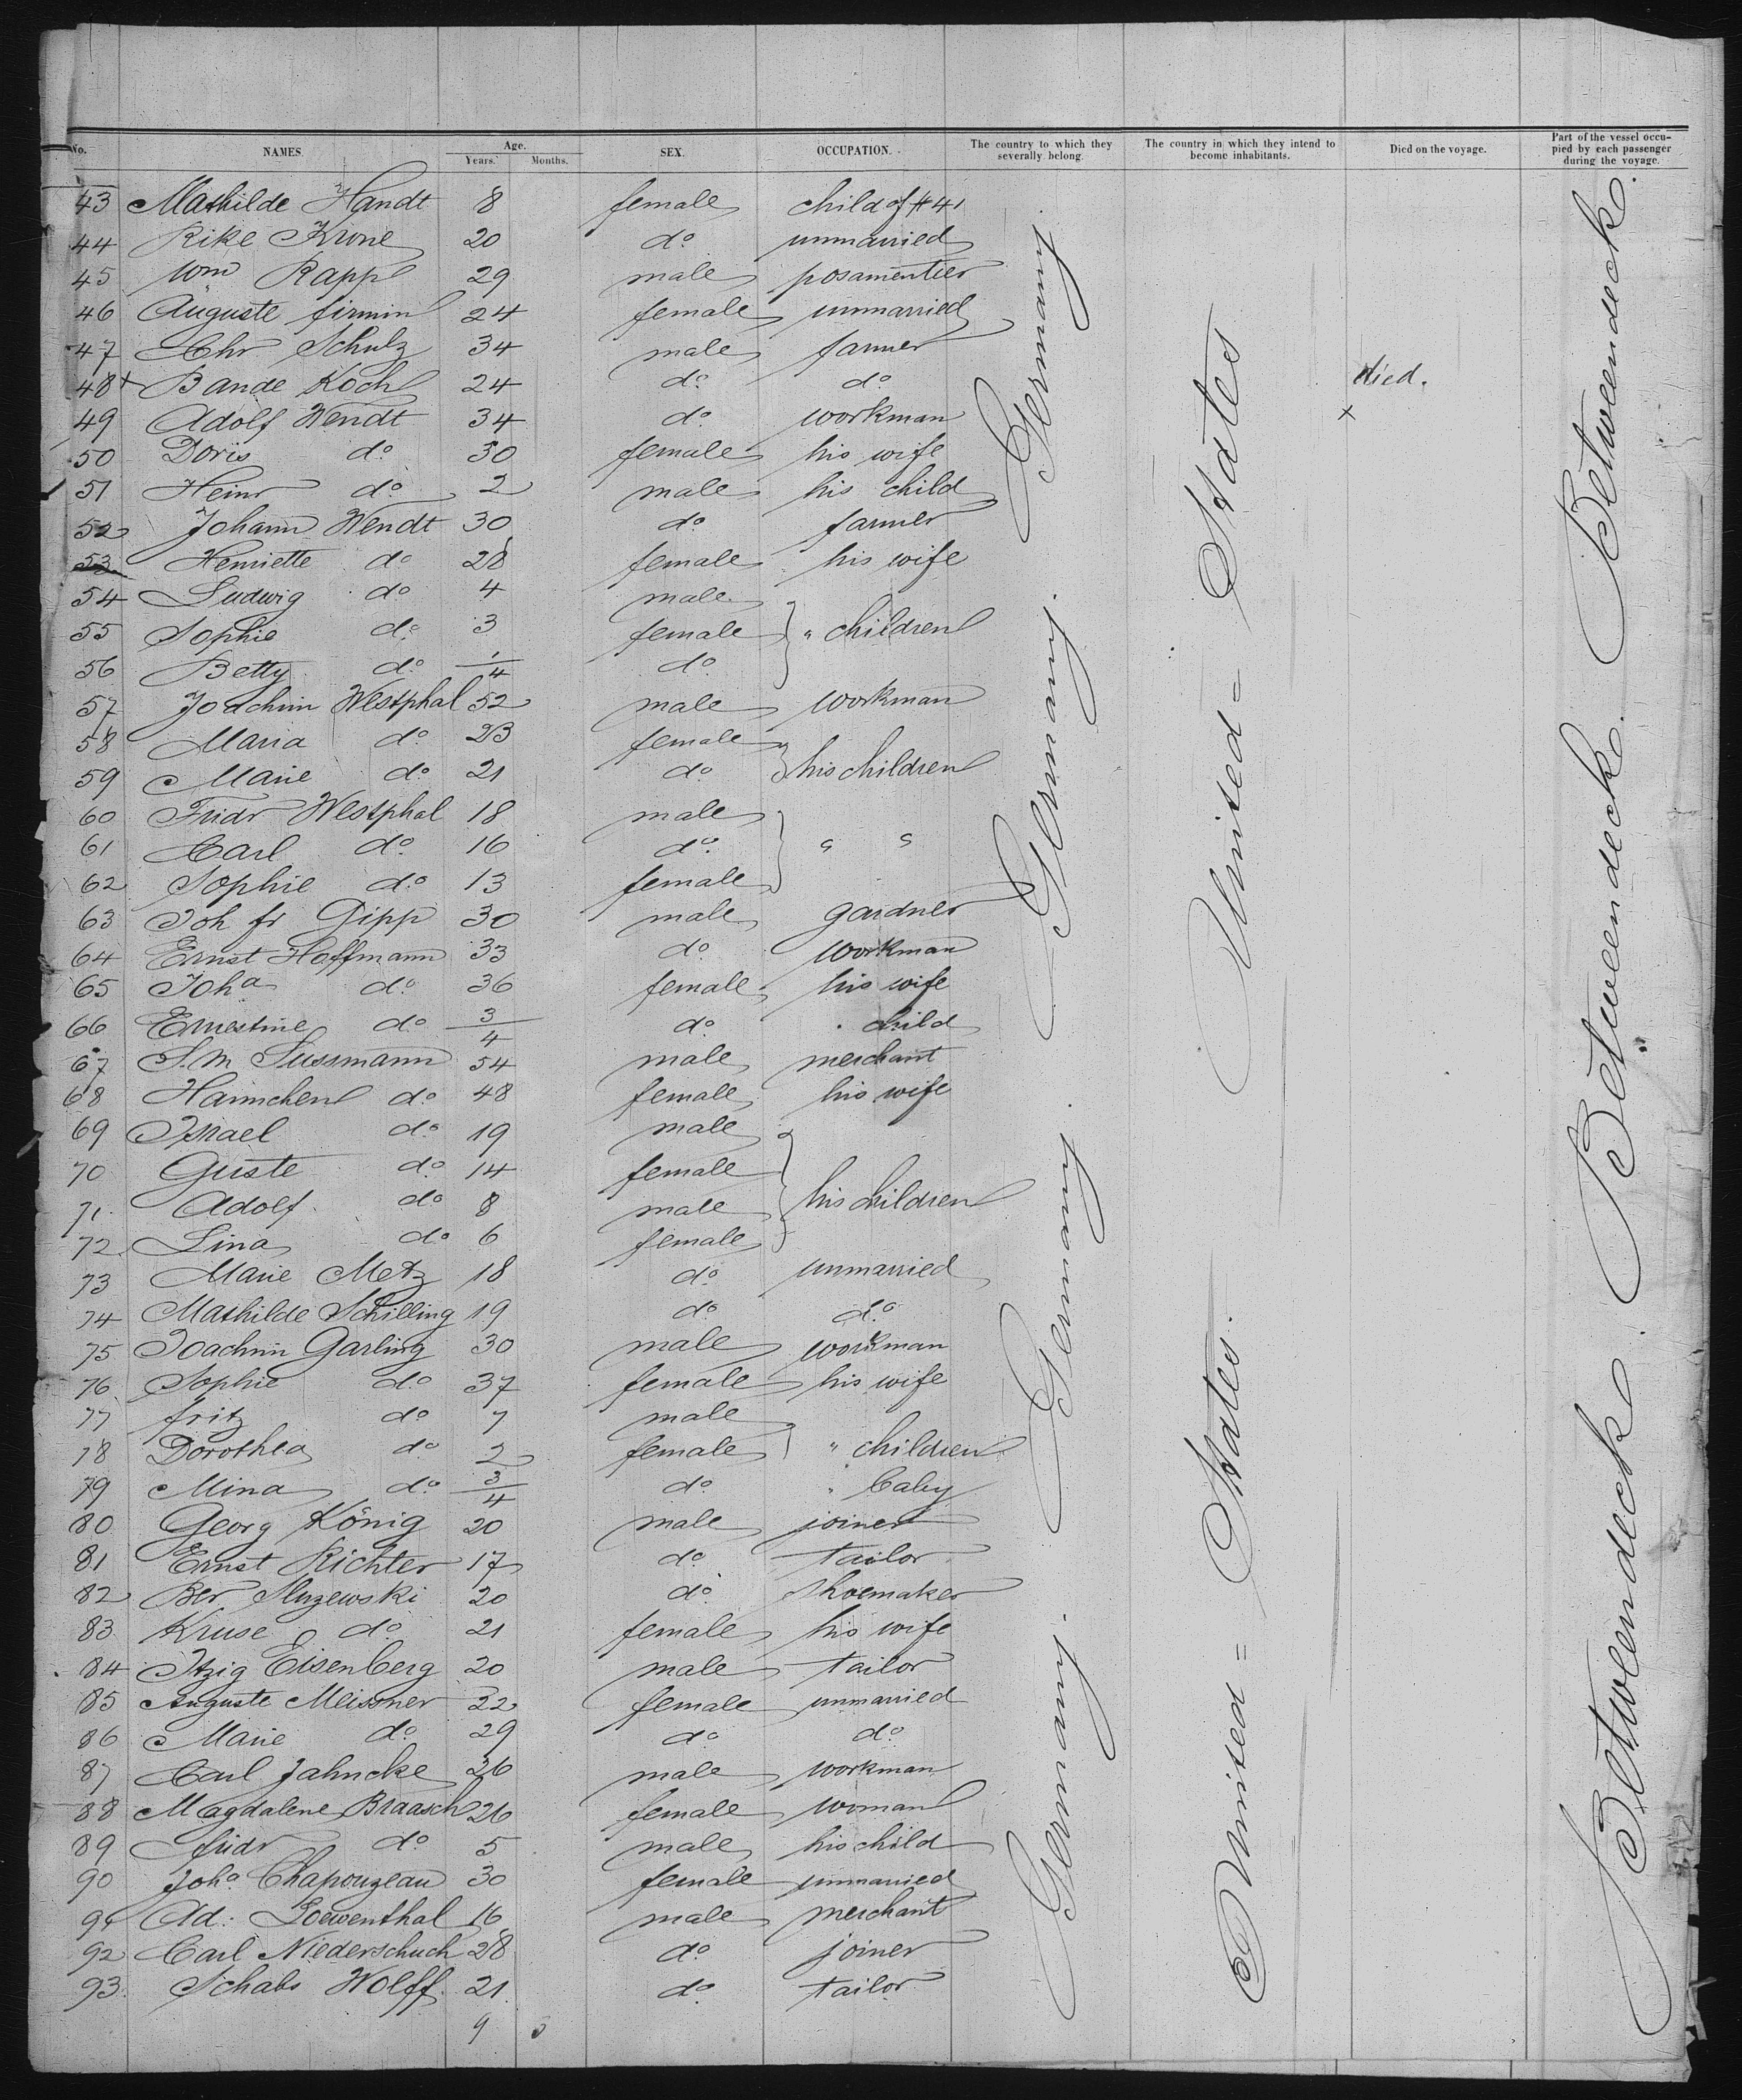 No. NAMES. Age. Years. Months. SEX. OCCUPATION. The country to which they severally belong. The country in which they intend to become inhabitants. Died on the voyage. Part of the vessel occupied by each passenger during the voyage.
43 Mathilde Handt 8 female child of #41
44 Rike Krone 20 do unmarried
45 Wm Rapp 29 male posamentier
46 Auguste firmin 24 female unmarried
47 Chr Schulz 34 male farmer
48 + Bande Koch 24 do do died.
49 Adolf Wendt 34 do workman x
50 Doris do 30 female his wife
51 Heinr do 2 male his child
52 Johann Wendt 30 do farmer
53 Henriette do 28 female his wife
54 Ludwig do 4 male
55 Sophie do 3 female " children
56 Betty do 1/4 do
57 Joachim Westphal 52 male workman
58 Maria do 23 female
59 Marie do 21 do his children
60 Fridr Westphal 18 male
61 Carl do 16 do " "
62 Sophie do 13 female
63 Joh fr Gipp 30 male gardner
64 Ernst Hoffmann 33 do workman
65 Joha do 36 female his wife
66 Ernestine do 3/4 do " child
67 S. M. Sussmann 54 male merchant
68 Hannchen do 48 female his wife
69 Israel do 19 male
70 Guste do 14 female
71 Adolf do 8 male his children
72 Lina do 6 female
73 Marie Metz 18 do unmarried
74 Mathilde Schilling 19 do do
75 Joachim Garling 30 male workman
76 Sophie do 37 female his wife
77 fritz do 7 male
78 Dorothea do 2 female " children
79 Mina do 3/4 do " baby
80 Georg König 20 male joiner
81 Ernst Richter 17 do tailor
82 Ber 20 do shoemaker
83 Kruse do 21 female his wife
84 Itzig Eisenberg 20 male tailor
85 Auguste Meissner 22 female unmarried
86 Marie do 29 do do
87 Carl Jahncke 26 male workman
88 Magdalene Braasch 26 female woman
89 fridr do 5 male his child
90 Joha Chapouzeau 30 female unmarried
91 Ad: Loewenthal 16 male merchant
92 Carl Niederschuch 28 do joiner
93 Schabs Wolff 21 do tailor
9
Germany. Germany. Germany. Germany.
United = States. United = States
Betweendeck. Betweendeck. Betweendeck. Betweendeck.